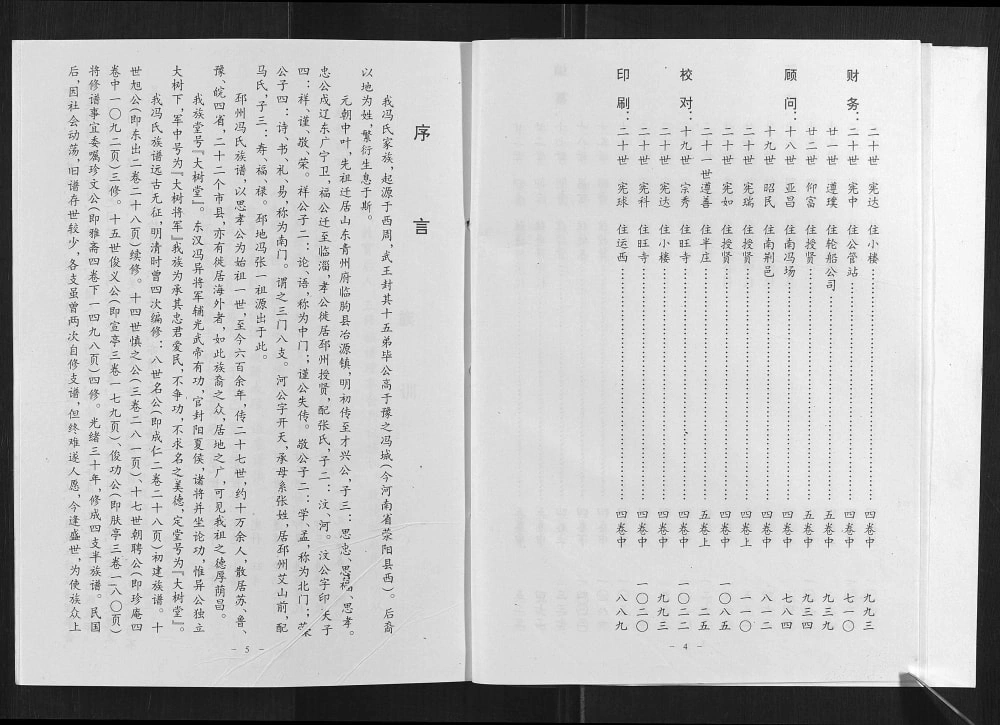 二十世 宪达 住小楼……四卷中 九九三
财务：二十世 宪中 住公管站……四卷中 七一〇
廿一世 遵璞 住轮船公司……五卷中 九三九
廿二世 仰富 住授贤……五卷中 九三四
顾问：十八世 亚昌 住南冯场……四卷中 七八四
十九世 昭民 住南荆邑……四卷中 八一二
二十世 宪瑞 住授贤……四卷上 一一〇
二十世 宪如 住授贤……四卷中 一〇八五
二十一世遵善 住半庄……五卷上 二五
校对：十九世 宗秀 住旺寺……四卷中 一〇二二
二十世 宪达 住小楼……四卷中 九九三
二十世 宪科 住旺寺……四卷中 一〇二〇
印刷：二十世 宪球 住运西……四卷中 八八九
- 4 -
序言
我冯氏家族，起源于西周，武王封其十五弟毕公高于豫之冯城（今河南省荥阳县西）。后裔
以地为姓，繁衍生息于斯。
元朝中叶，先祖迁居山东青州府临朐县冶源镇，明初传至才兴公，子三：思忠、思福、思孝。
忠公戍辽东广宁卫，福公迁至临淄，孝公徙居邳州授贤，配张氏，子二：汶、河。汶公字印天子
四：祥、谨、敬、荣。祥公子二：论、语，称为中门；谨公失传。敬公子二：学、孟，称为北门；
公子四：诗、书、礼、易，称为南门。谓之三门八支。河公字开天，承母系张姓，居邳州艾山前，配
马氏，子三：寿、福、禄。邳地冯张一祖源出于此。
邳州冯氏族谱，以思孝公为始祖一世，至今六百余年，传二十七世，约十万余人，散居苏、鲁、
豫、皖四省，二十二个市县，亦有徙居海外者，如此族裔之众，居地之广，可见我祖之德厚荫昌。
我族堂号『大树堂』。东汉冯异将军辅光武帝有功，官封阳夏侯，诸将并坐论功，惟异公独立
大树下，军中号为『大树将军』我族为承其忠君爱民，不争功，不求名之美德，定堂号为『大树堂』。
我冯氏族谱远古无征，明清时曾四次编修：八世名公（即成仁二卷二十八页）初建族谱。十
世旭公（即东出二卷二十八页）续修。十四世慎之公（三卷二八一页）、十七世朝聘公（即珍庵四
卷中一〇九二页）三修。十五世俊义公（即宣亭三卷一七九页）、俊功公（即肤亭三卷一八〇页）
将修谱事宜委嘱珍文公（即雅斋四卷下一四九八页）四修。光绪三十年，修成四支半族谱。民国
后，因社会动荡，旧谱存世较少，各支虽曾两次自修支谱，但终难遂人愿，今逢盛世，为使族众上
- 5 -